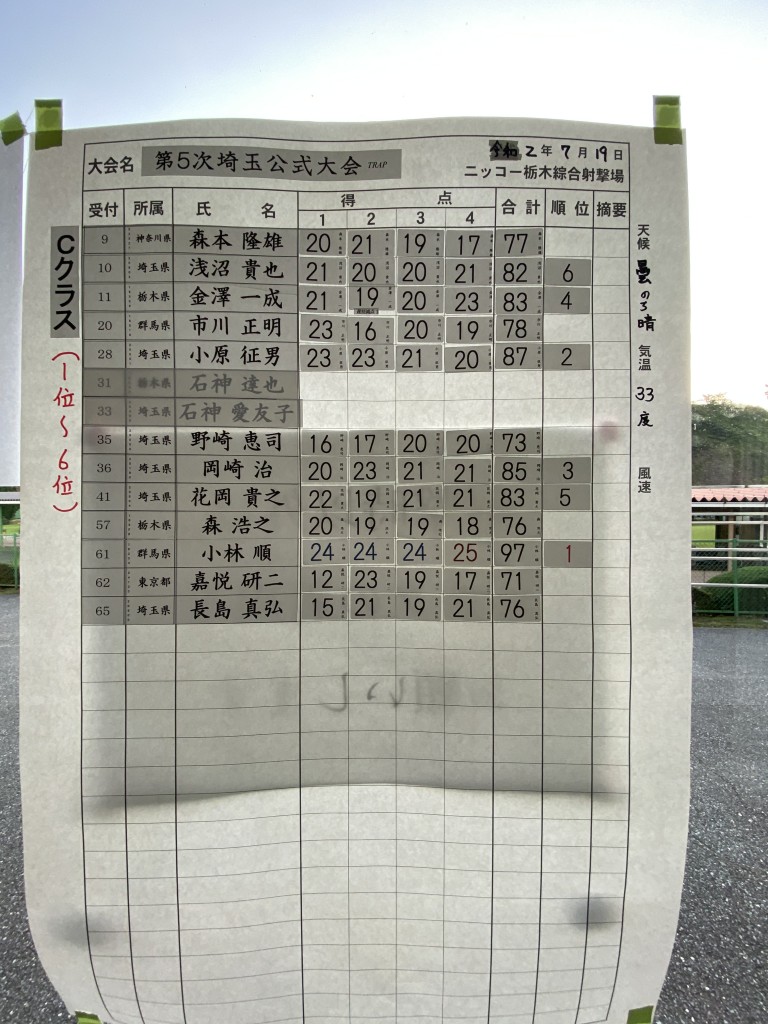 大会名 第5次埼玉公式大会 TRAP 令和2年7月19日
ニッコー栃木綜合射撃場
受付 所属 氏名 得点 合計 順位 摘要
1 2 3 4
Cクラス
(1位~6位)
9 神奈川県 森本 隆雄 20 21 19 17 77
10 埼玉県 浅沼 貴也 21 20 20 21 82 6
11 栃木県 金澤 一成 21 19 20 23 83 4
20 群馬県 市川 正明 23 16 20 19 78
28 埼玉県 小原 征男 23 23 21 20 87 2
31 栃木県 石神 達也
33 埼玉県 石神 愛友子
35 埼玉県 野崎 恵司 16 17 20 20 73
36 埼玉県 岡崎 治 20 23 21 21 85 3
41 埼玉県 花岡 貴之 22 19 21 21 83 5
57 栃木県 森 浩之 20 19 19 18 76
61 群馬県 小林 順 24 24 24 25 97 1
62 東京都 嘉悦 研二 12 23 19 17 71
65 埼玉県 長島 真弘 15 21 19 21 76
天候 曇のち晴 気温 33度 風速